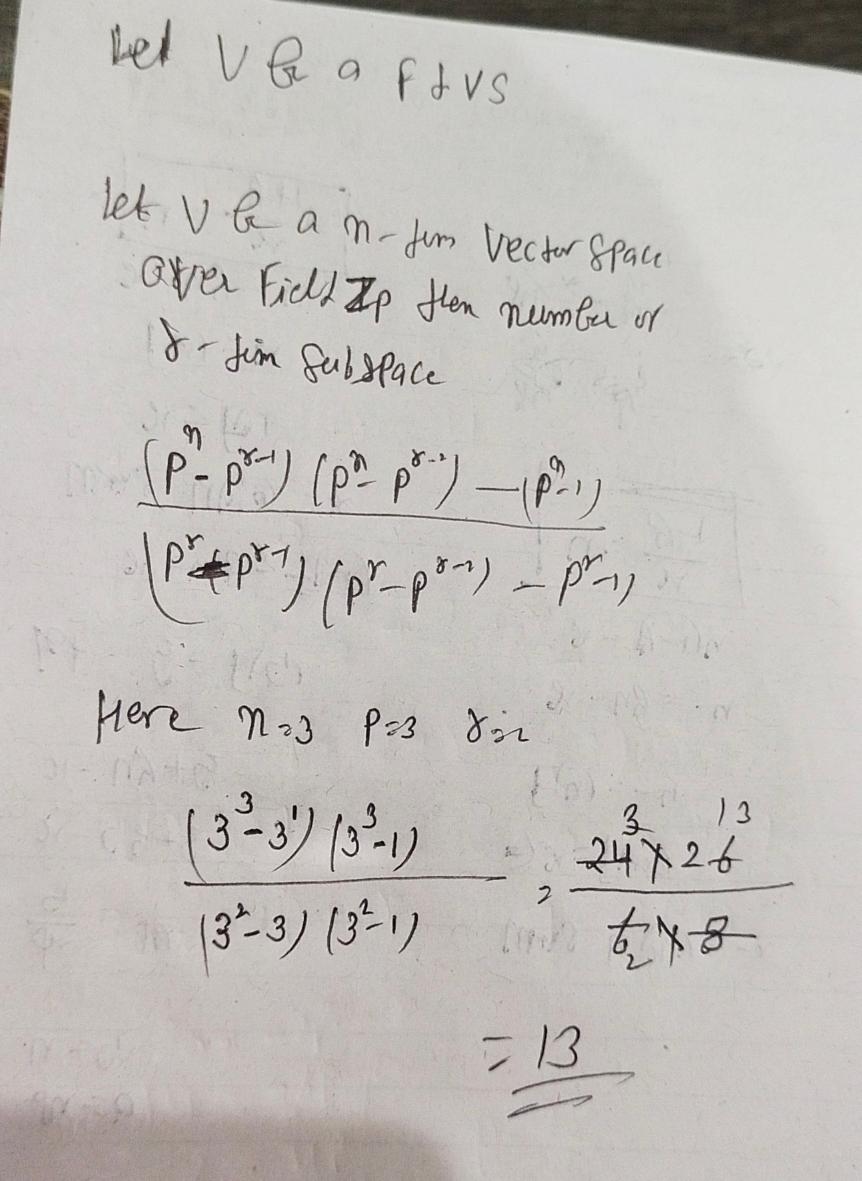 Let V be a f d v s
let V be a n-dim Vector Space
over Field Zp then number of
r-dim Subspace
(p^n - p^{r-1}) (p^n - p^{r-2}) — (p^n - 1)
(p^r - p^{r-1}) (p^r - p^{r-2}) - p^r - 1)
Here n=3 p=3 r=2
(3^3 - 3^1) (3^3 - 1)
(3^2 - 3) (3^2 - 1)
= 24 3 × 26 13
6 2 × 8
= 13